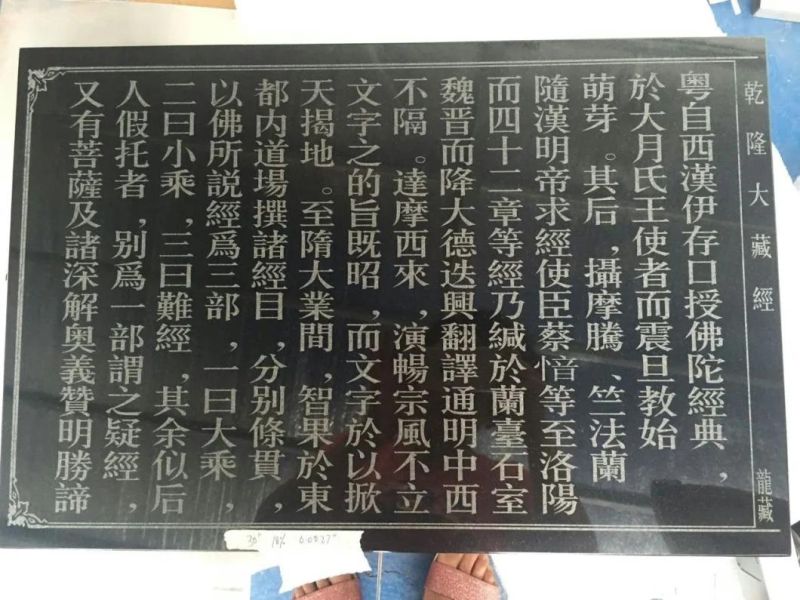 乾隆大藏經
龍藏
粤自西漢伊存口授佛陀經典，
於大月氏王使者而震旦教始
萌芽。其后，攝摩騰、竺法蘭
隨漢明帝求經使臣蔡愔等至洛陽
而四十二章等經乃緘於蘭臺石室
魏晋而降大德迭興翻譯通明中西
不隔。達摩西來，演暢宗風不立
文字之的旨既昭，而文字於以掀
天揭地。至隋大業間，智果於東
都内道場撰諸經目，分别條貫，
以佛所説經爲三部，一曰大乘，
二曰小乘，三曰難經，其余似后
人假托者，别爲一部謂之疑經，
又有菩薩及諸深解奥義贊明勝諦